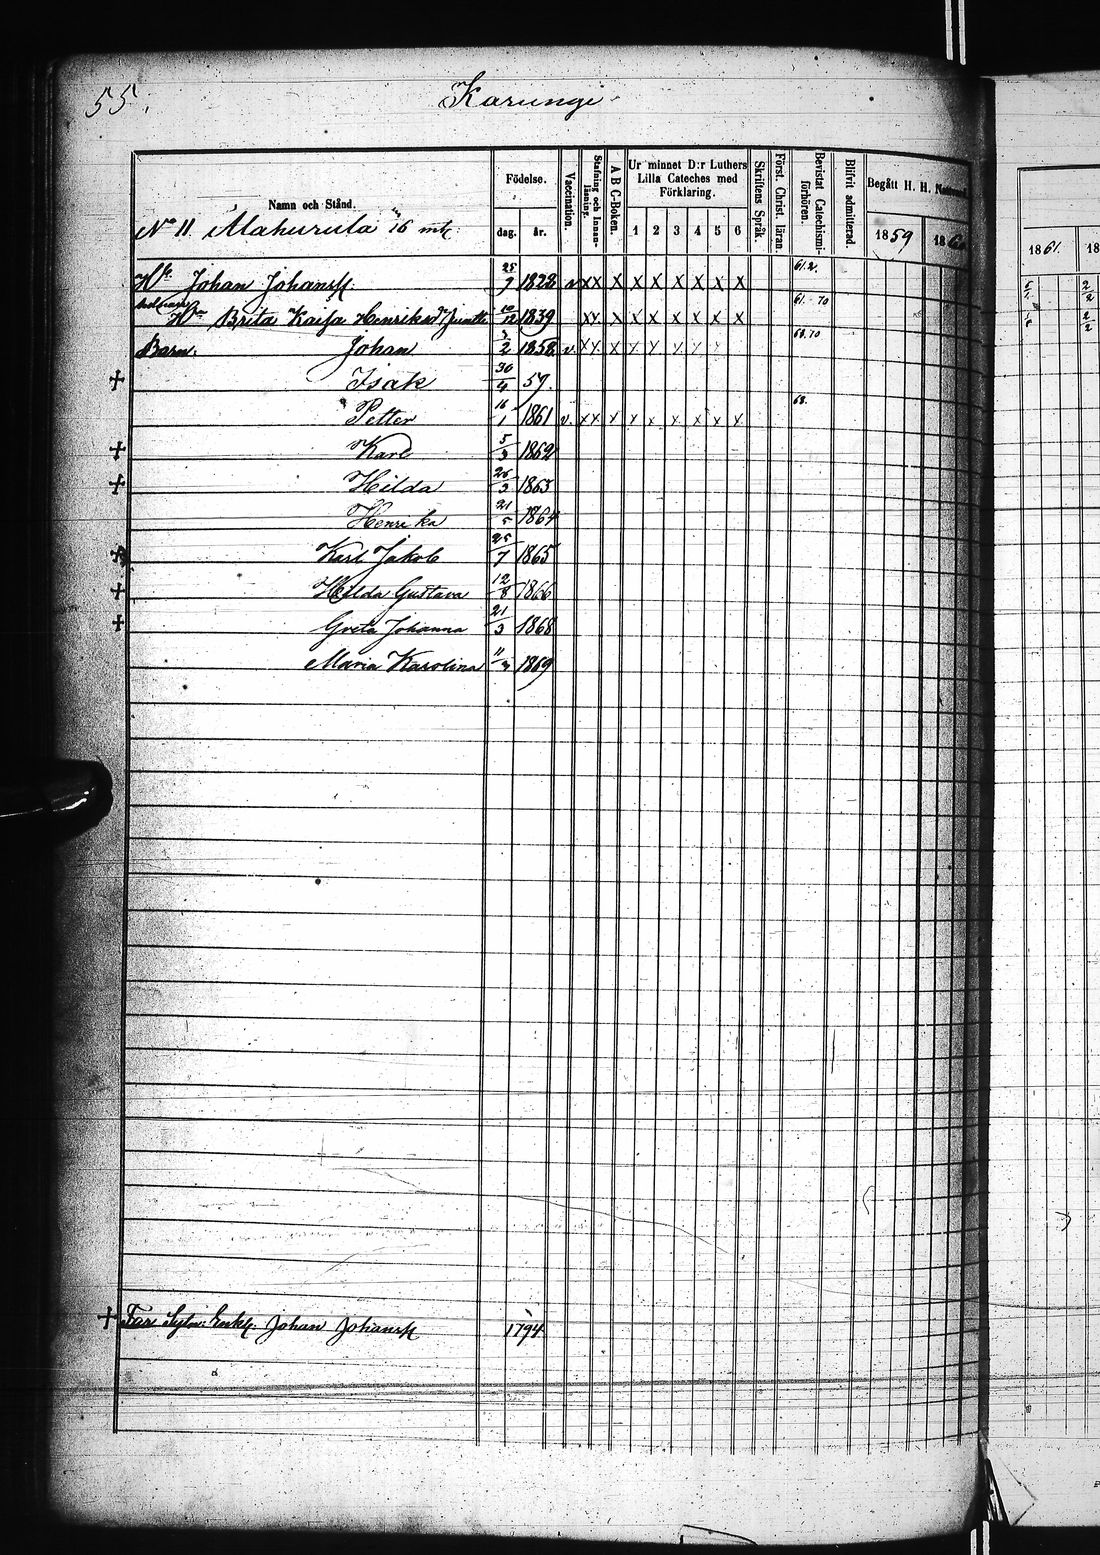 55.
Karungi
Namn och Stånd.
Födelse.
dag.
år.
Vaccination.
Stafning och Innanläsning.
A B C-Boken.
Ur minnet D:r Luthers
Lilla Cateches med
Förklaring.
1 2 3 4 5 6
Skriftens Språk.
Först. Christ. läran.
Bevistat Catechismiförhören.
Blifvit admitterad.
Begått H. H.
1859
186
1861.
No 11. Mahurula 16 mtl.
Johan Johanss. 25/9 1828 v xx x x x x x x x 61.2.
Brita Kaisa Henriksd 10/12 1839 xx x x x x x x x 61. 70
Barn. Johan 2/2 1858 v. xx x x x x x x 68.70
+ Isak 30/4 59.
Petter 16/1 1861 v. xx x x x x x x x 68.
+ Karl 5/3 1862
+ Hilda 26/3 1863
Henrika 21/5 1864
Karl Jakob 25/7 1865
+ Hilda Gustava 12/8 1866
+ Greta Johanna 21/3 1868
Maria Karolina 1869
+ Far Johan Johanss 1794